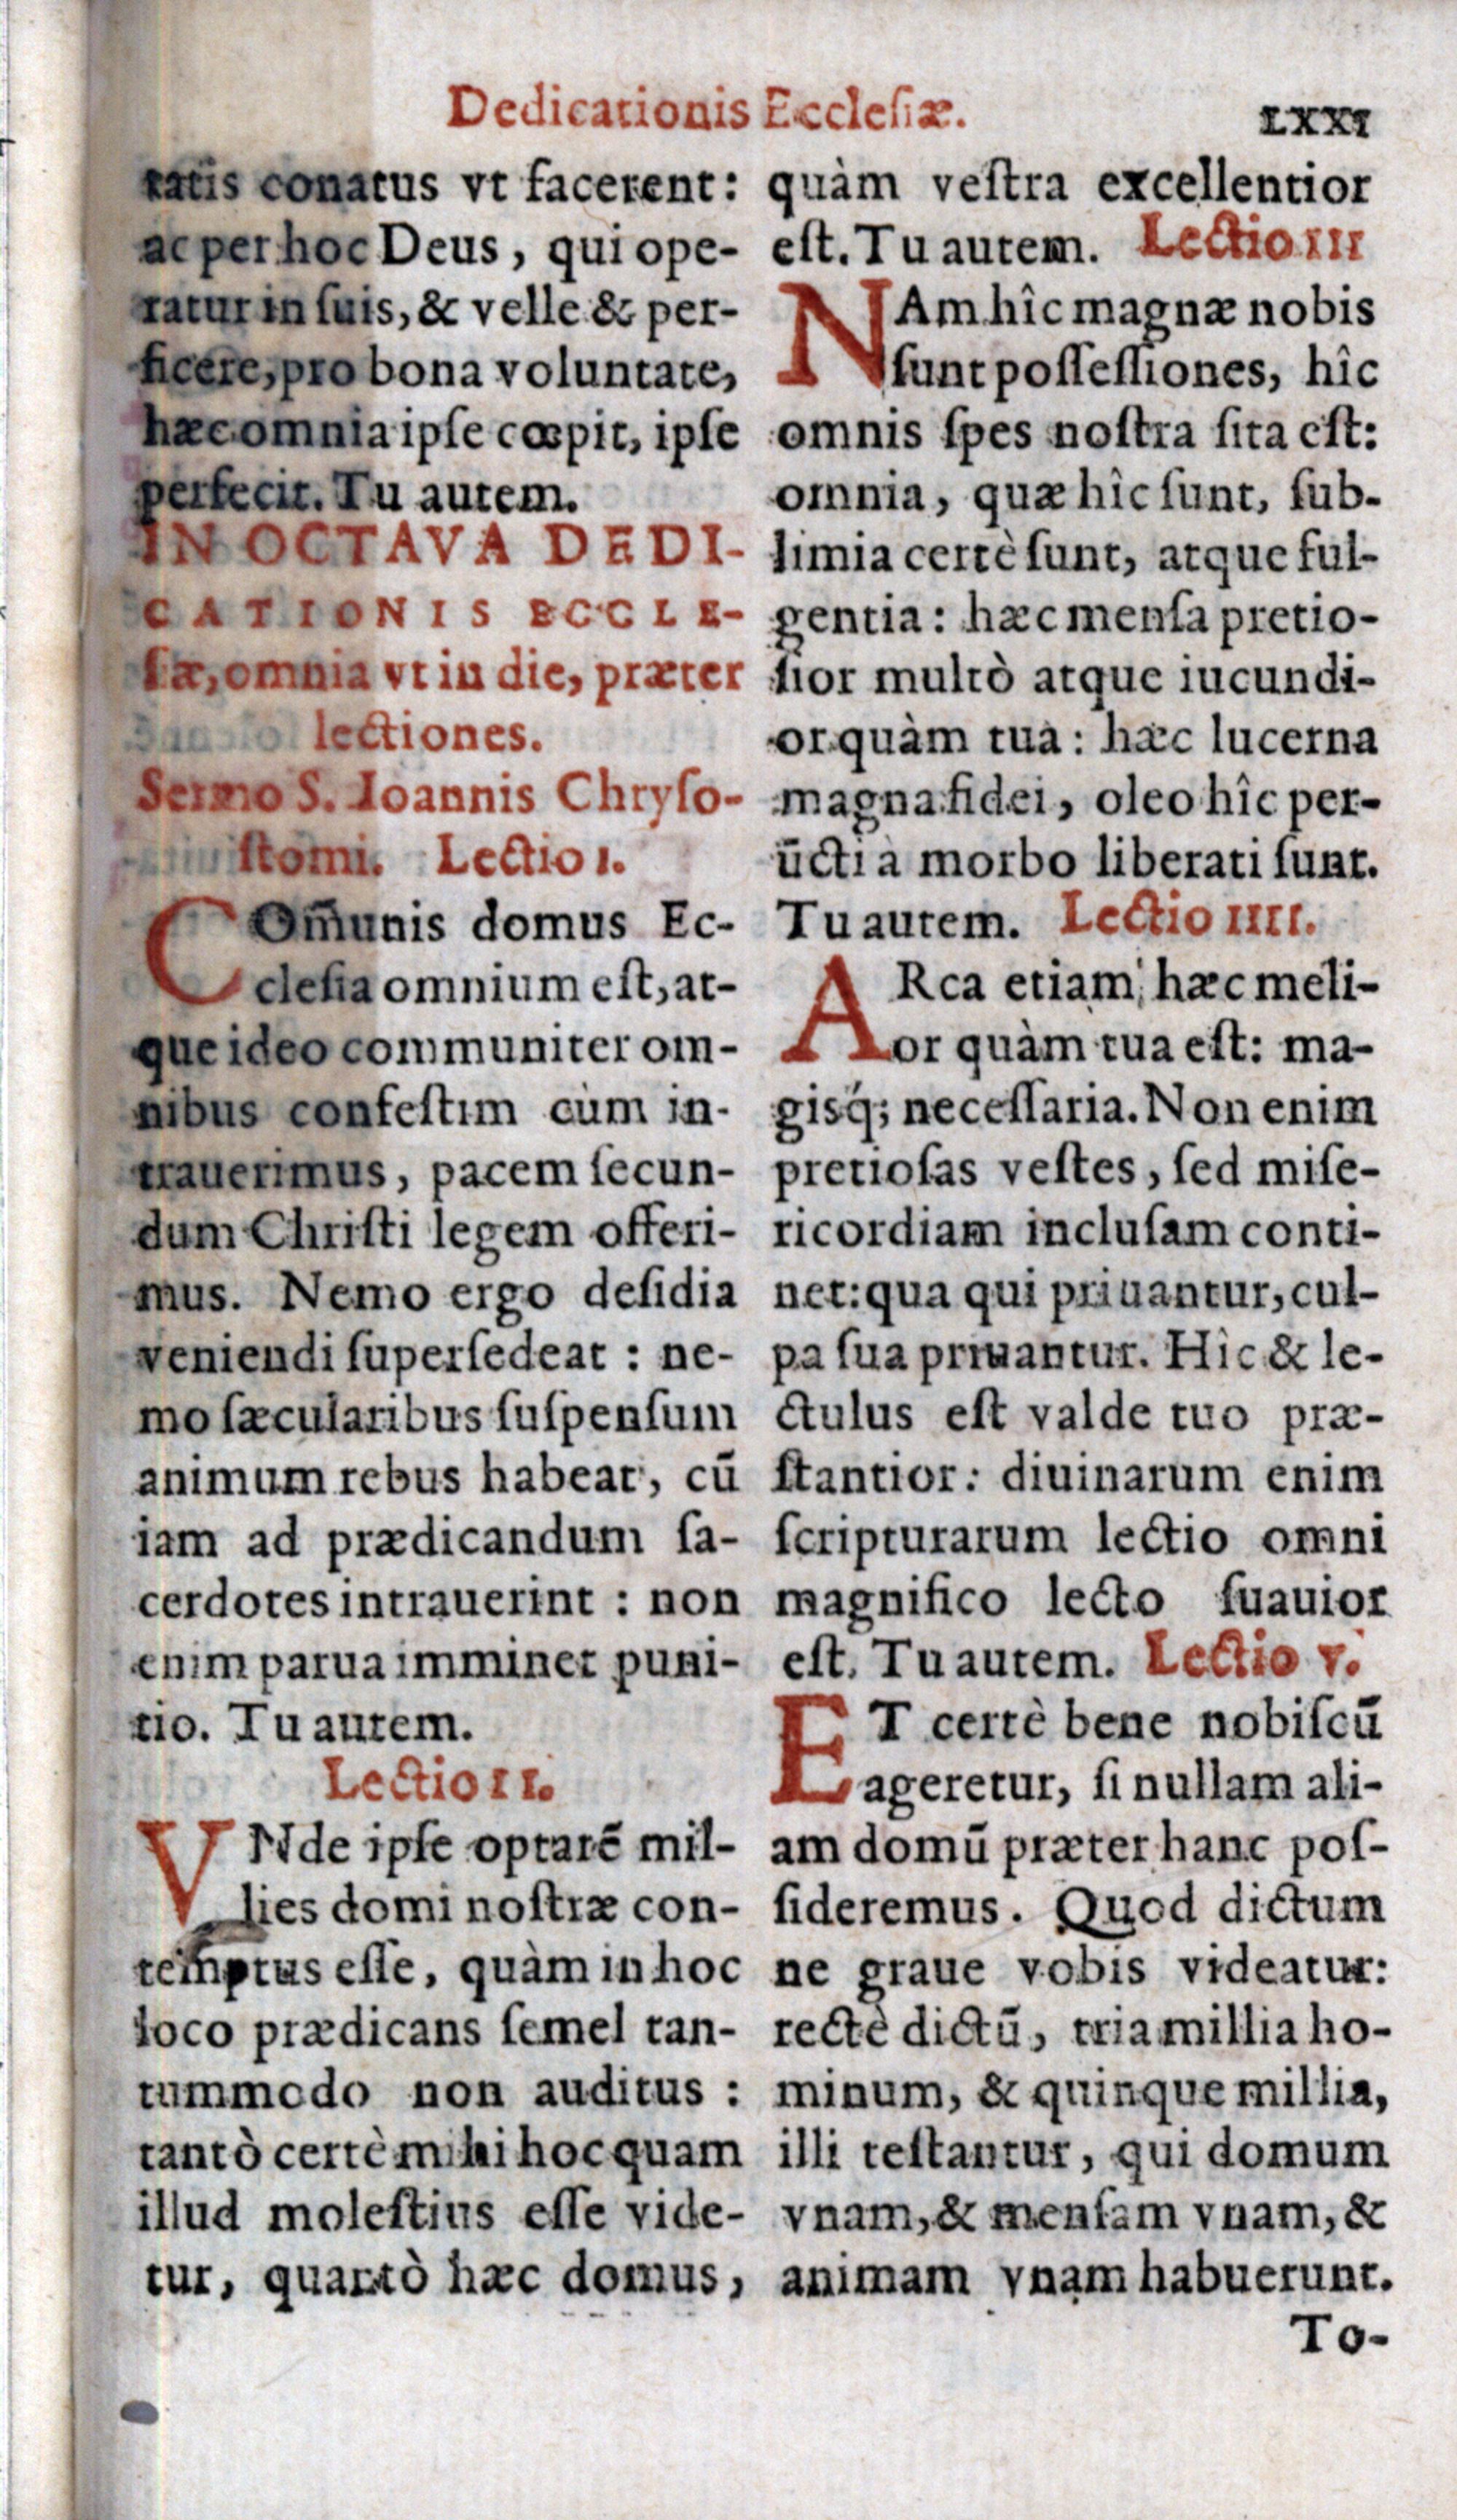 Dedicationis Eccleſiæ. LXXI
tatis conatus vt facerent:
ac per hoc Deus, qui ope-
ratur in ſuis, & velle & per-
ficere, pro bona voluntate,
hæc omnia ipſe cœpit, ipſe
perfecit. Tu autem.
IN OCTAVA DEDI-
CATIONIS ECCLE-
ſiæ, omnia vt in die, præter
lectiones.
Sermo S. Ioannis Chryſo-
ſtomi. Lectio I.
COm̃unis domus Ec-
cleſia omnium eſt, at-
que ideo communiter om-
nibus confeſtim cùm in-
trauerimus, pacem ſecun-
dum Chriſti legem offeri-
mus. Nemo ergo deſidia
veniendi ſuperſedeat : ne-
mo ſæcularibus ſuſpenſum
animum rebus habeat, cū
iam ad prædicandum ſa-
cerdotes intrauerint : non
enim parua imminet puni-
tio. Tu autem.
Lectio II.
VNde ipſe optarē mil-
lies domi noſtræ con-
temptus eſſe, quàm in hoc
loco prædicans ſemel tan-
tummodo non auditus :
tantò certè mihi hoc quam
illud moleſtius eſſe vide-
tur, quantò hæc domus,
quàm veſtra excellentior
eſt. Tu autem. Lectio III
NAm hîc magnæ nobis
ſunt poſſeſſiones, hîc
omnis ſpes noſtra ſita eſt:
omnia, quæ hîc ſunt, ſub-
limia certè ſunt, atque ful-
gentia : hæc menſa pretio-
ſior multò atque iucundi-
or quàm tua : hæc lucerna
magna fidei, oleo hîc per-
ūcti a morbo liberati ſunt.
Tu autem. Lectio IIII.
ARca etiam hæc meli-
or quàm tua eſt: ma-
giſq́; neceſſaria. Non enim
pretioſas veſtes, ſed miſe-
ricordiam incluſam conti-
net: qua qui priuantur, cul-
pa ſua priuantur. Hîc & le-
ctulus eſt valde tuo præ-
ſtantior : diuinarum enim
ſcripturarum lectio omni
magnifico lecto ſuauior
eſt. Tu autem. Lectio v.
ET certè bene nobiſcū
ageretur, ſi nullam ali-
am domū præter hanc poſ-
ſideremus. Quod dictum
ne graue vobis videatur:
rectè dictū, tria millia ho-
minum, & quinque millia,
illi teſtantur, qui domum
vnam, & menſam vnam, &
animam vnam habuerunt.
To-